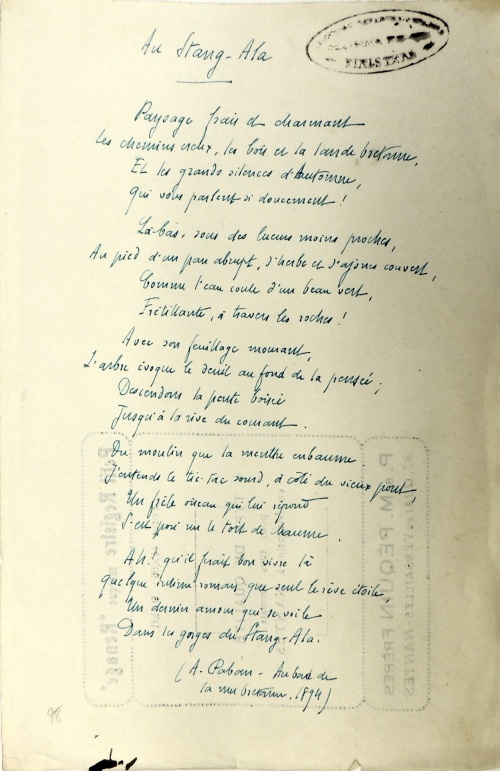 Au Stang-Ala
FINISTÈRE
Paysage frais et charmant
Les chemins creux, les bois et la lande bretonne,
Et les grands silences d'Automne,
Qui vous parlent si doucement !
Là-bas, sous des lueurs moins proches,
Au pied d'un pan abrupt, d'herbe et d'ajoncs couvert,
Comme l'eau coule d'un beau vert,
Frétillante, à travers les roches !
Avec son feuillage mourant,
L'arbre évoque le deuil au fond de la pensée ;
Descendons la pente boisée
Jusqu'à la rive du courant.
Du moulin que la menthe embaume
J'entends le tic-tac sourd, à côté du vieux pont,
Un frêle oiseau qui lui répond
S'est posé sur le toit de chaume.
Ah ! qu'il ferait bon vivre là
Quelque intime roman que seul le rêve étoile,
Un dernier amour qui se voile
Dans les gorges du Stang-Ala.
(A. Paban - Au bord de
la mer bretonne, 1894)
98
P. & M. PÉQUIN FRÈRES
NANTES
Petit Registre "Renage"